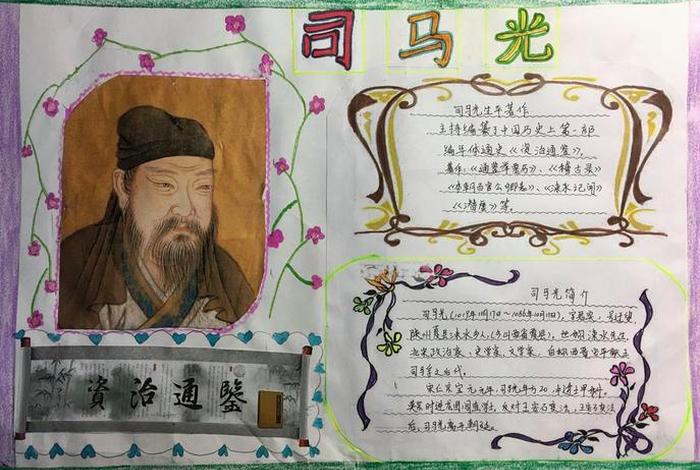 司马光
司马光生平著作
主持编纂了中国历史上第一部
编年体通史《资治通鉴》,
著作:《通鉴举要历》、《稽古录》
《本朝百官公卿表》、《涑水记闻》
《潜虚》等。
司马光简介
司马光(1019年11月17日~1086年10月11日),字君实,号迂叟,
陕州夏县涑水乡人(今山西省夏县),世称涑水先生,
北宋政治家、史学家、文学家,自称西晋安平献王
司马孚之后代。
宋仁宗宝元元年,司马光年方20,中进士甲科,
英宗时进龙图阁直学士,反对王安石变法,王安石变法
后,司马光离开朝廷。
資治通鑒